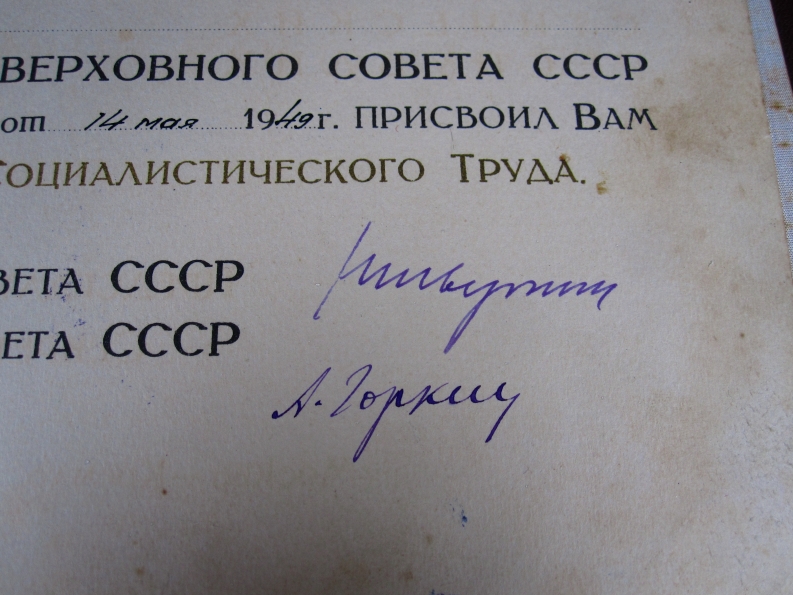 ВЕРХОВНОГО СОВЕТА СССР
от 14 мая 1949 г. ПРИСВОИЛ ВАМ
СОЦИАЛИСТИЧЕСКОГО ТРУДА.
ВЕТА СССР
ЕТА СССР
А. Горкин